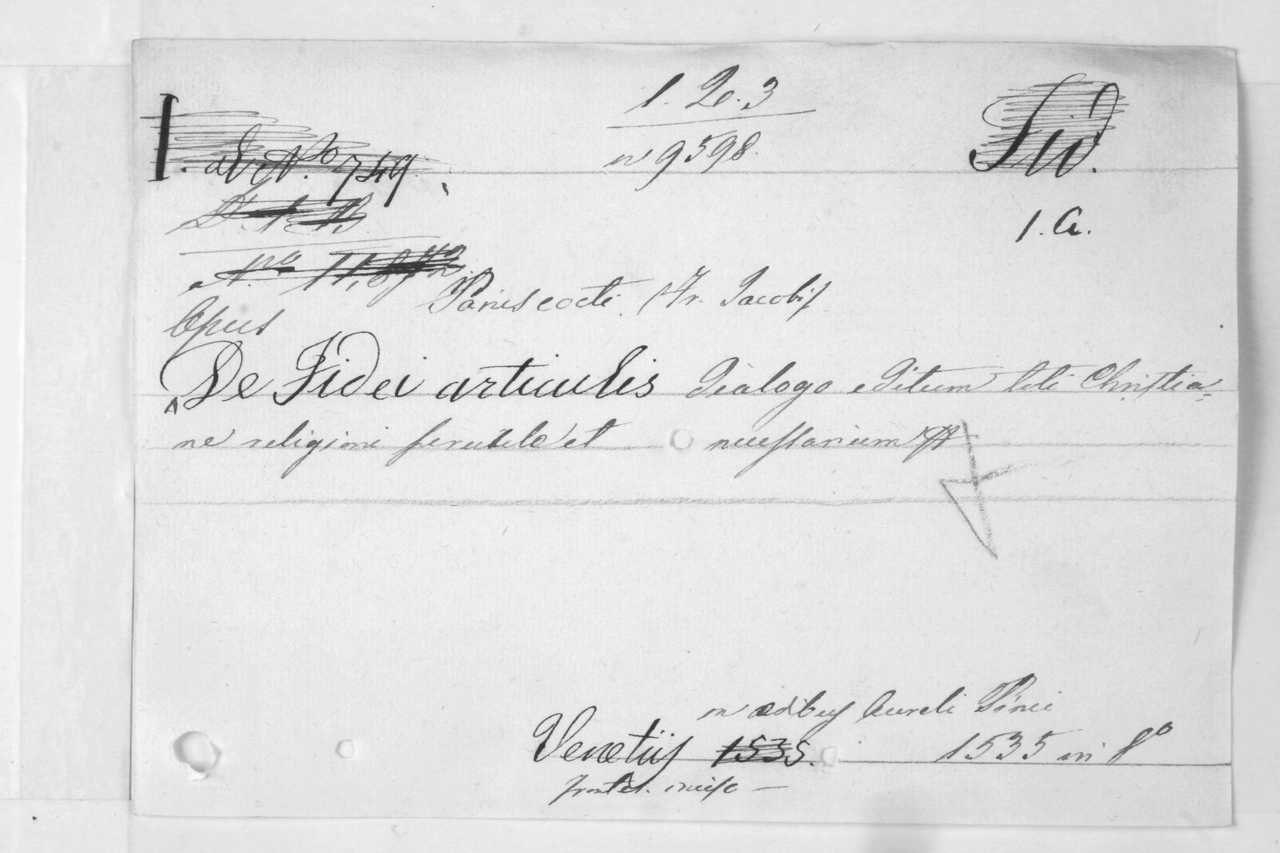 1. 2o. 3
n 9598.
Fid.
I. ad No. 749.
1. a.
Paniscocti (Fr. Jacobi)
Opus
De Fidei articulis Dialogo editum toti Christia-
ne religioni perutile et necessarium
in ædibus Aureli Pincii
Venetiis 1535. 1535 in 8o